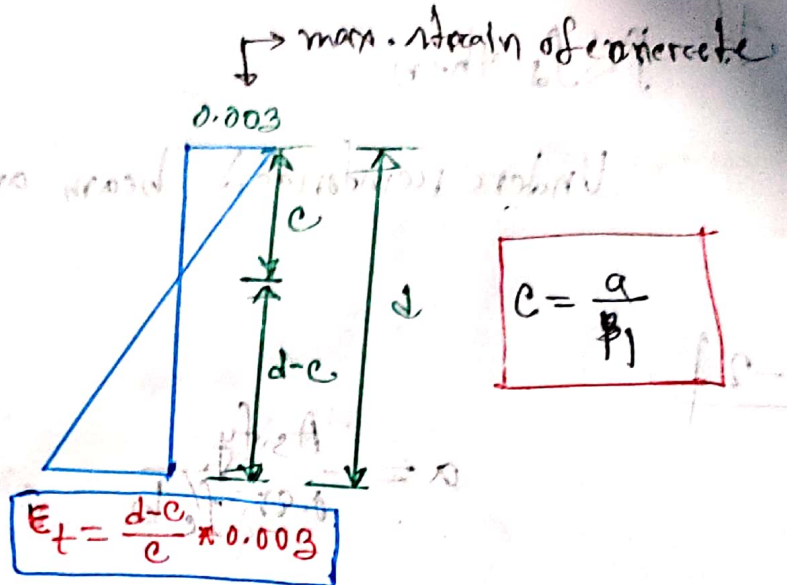 → max. strain of concrete
0.003
c
d
c = a/β1
d-c
a = As.fy
Et = d-c/c * 0.003